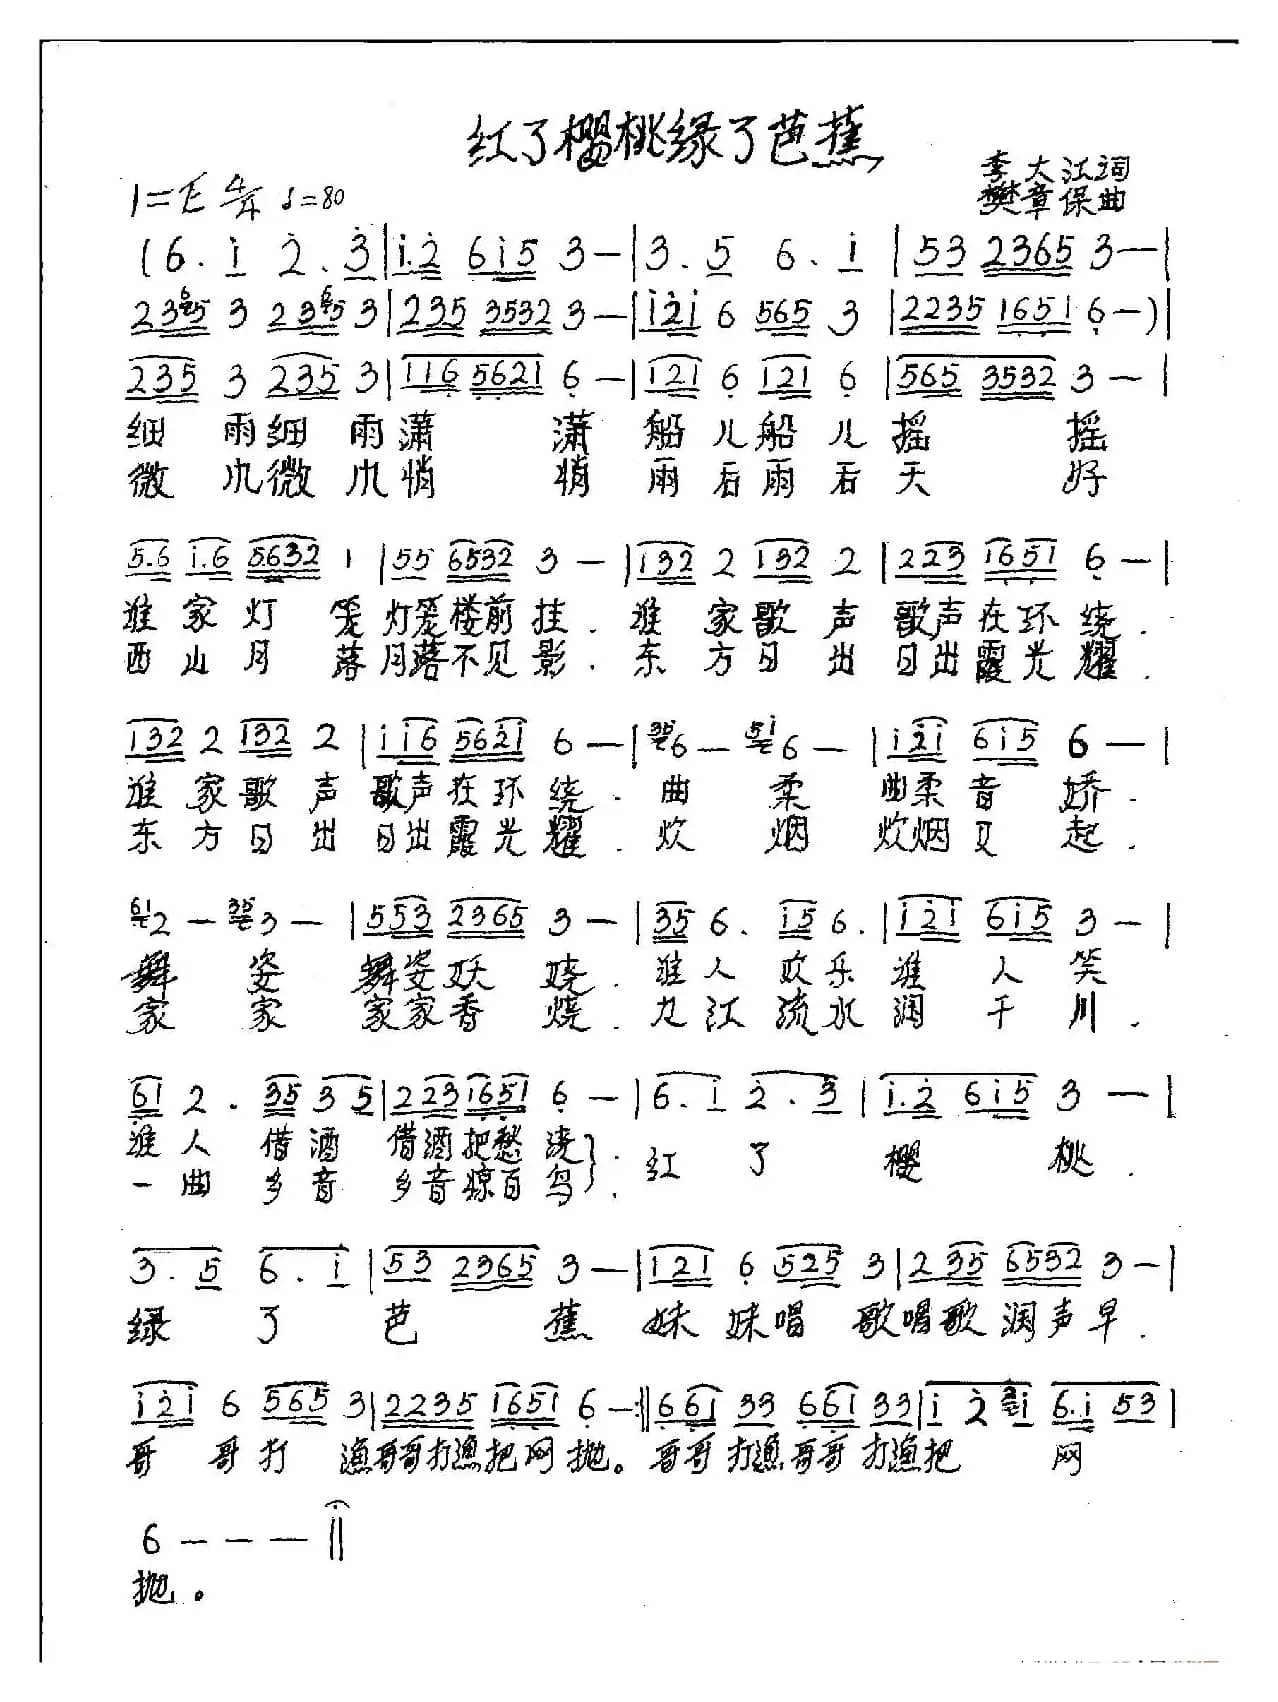 红了樱桃绿了芭蕉
李大江词
樊章保曲
1=E 4/4 ♩=80
(6. i 2. 3|i.2 6i5 3—|3. 5 6. i|53 2365 3—|
235 3 235 3|235 3532 3—|i2i 6 565 3|2235 1651 6—)|
235 3 235 3|116 5621 6—|121 6 121 6|565 3532 3—|
细 雨细 雨潇 潇 船儿船儿摇 摇
微 爪微 爪悄 悄 雨石雨石天 好
5.6 i.6 5632 1|55 6532 3—|132 2 132 2|223 1651 6—|
谁家灯 笼灯笼楼前挂.谁 家歌 声 歌声在环绕.
西山月 落月落不见影.东 方日 出 日出霞光耀.
132 2 132 2|ii6 562i 6—|6— 6—|i2i 6i5 6—|
谁 家歌 声 歌声在环绕.曲 柔 曲柔音 娇.
东 方日 出 日出霞光耀.炊 烟 炊烟又 起.
2— 3—|553 2365 3—|35 6. i5 6.|i2i 6i5 3—|
舞 姿 舞姿妖 娆.谁人 欢乐谁 人 笑
家 家 家家香 烧.九江 流水润 千 川.
61 2. 35 35|223 1651 6—|6.i 2.3|i.2 6i5 3—|
谁人 借酒 借酒把愁浇}.红 了 樱 桃.
一曲 乡音 乡音惊百鸟}.
3.5 6.i|53 2365 3—|121 6 525 3|235 6532 3—|
绿 了 芭 蕉 妹 妹唱 歌唱歌润声早.
i2i 6 565 3|2235 1651 6—:‖661 33 661 33|i 2 i 6.i 53|
哥 哥打 渔哥哥打渔把网抛。哥哥打渔哥哥打渔把 网
6———‖
抛。